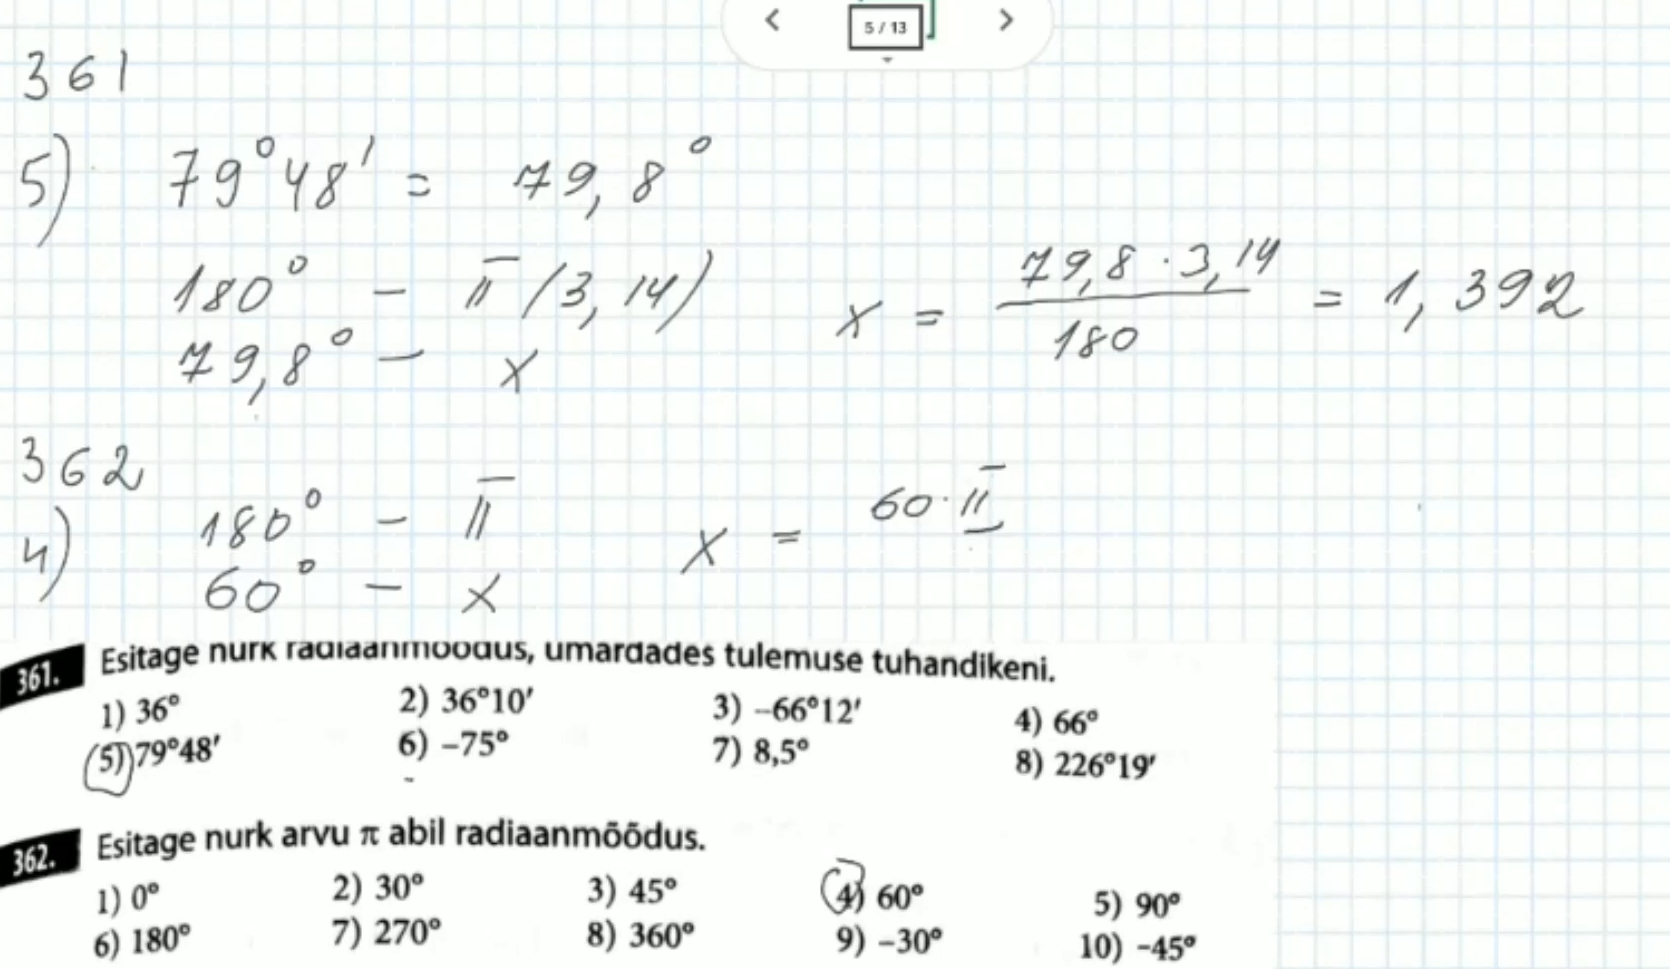 5 / 13
361
5) 79°48' = 79,8°
180° - π (3,14)
79,8° - x
x = 79,8 · 3,14 / 180 = 1,392
362
4) 180° - π
60° - x
x = 60·π
361. Esitage nurk radiaanmõõdus, ümardades tulemuse tuhandikeni.
1) 36° 2) 36°10′ 3) –66°12′ 4) 66°
5) 79°48′ 6) –75° 7) 8,5° 8) 226°19′
362. Esitage nurk arvu π abil radiaanmõõdus.
1) 0° 2) 30° 3) 45° 4) 60° 5) 90°
6) 180° 7) 270° 8) 360° 9) –30° 10) –45°